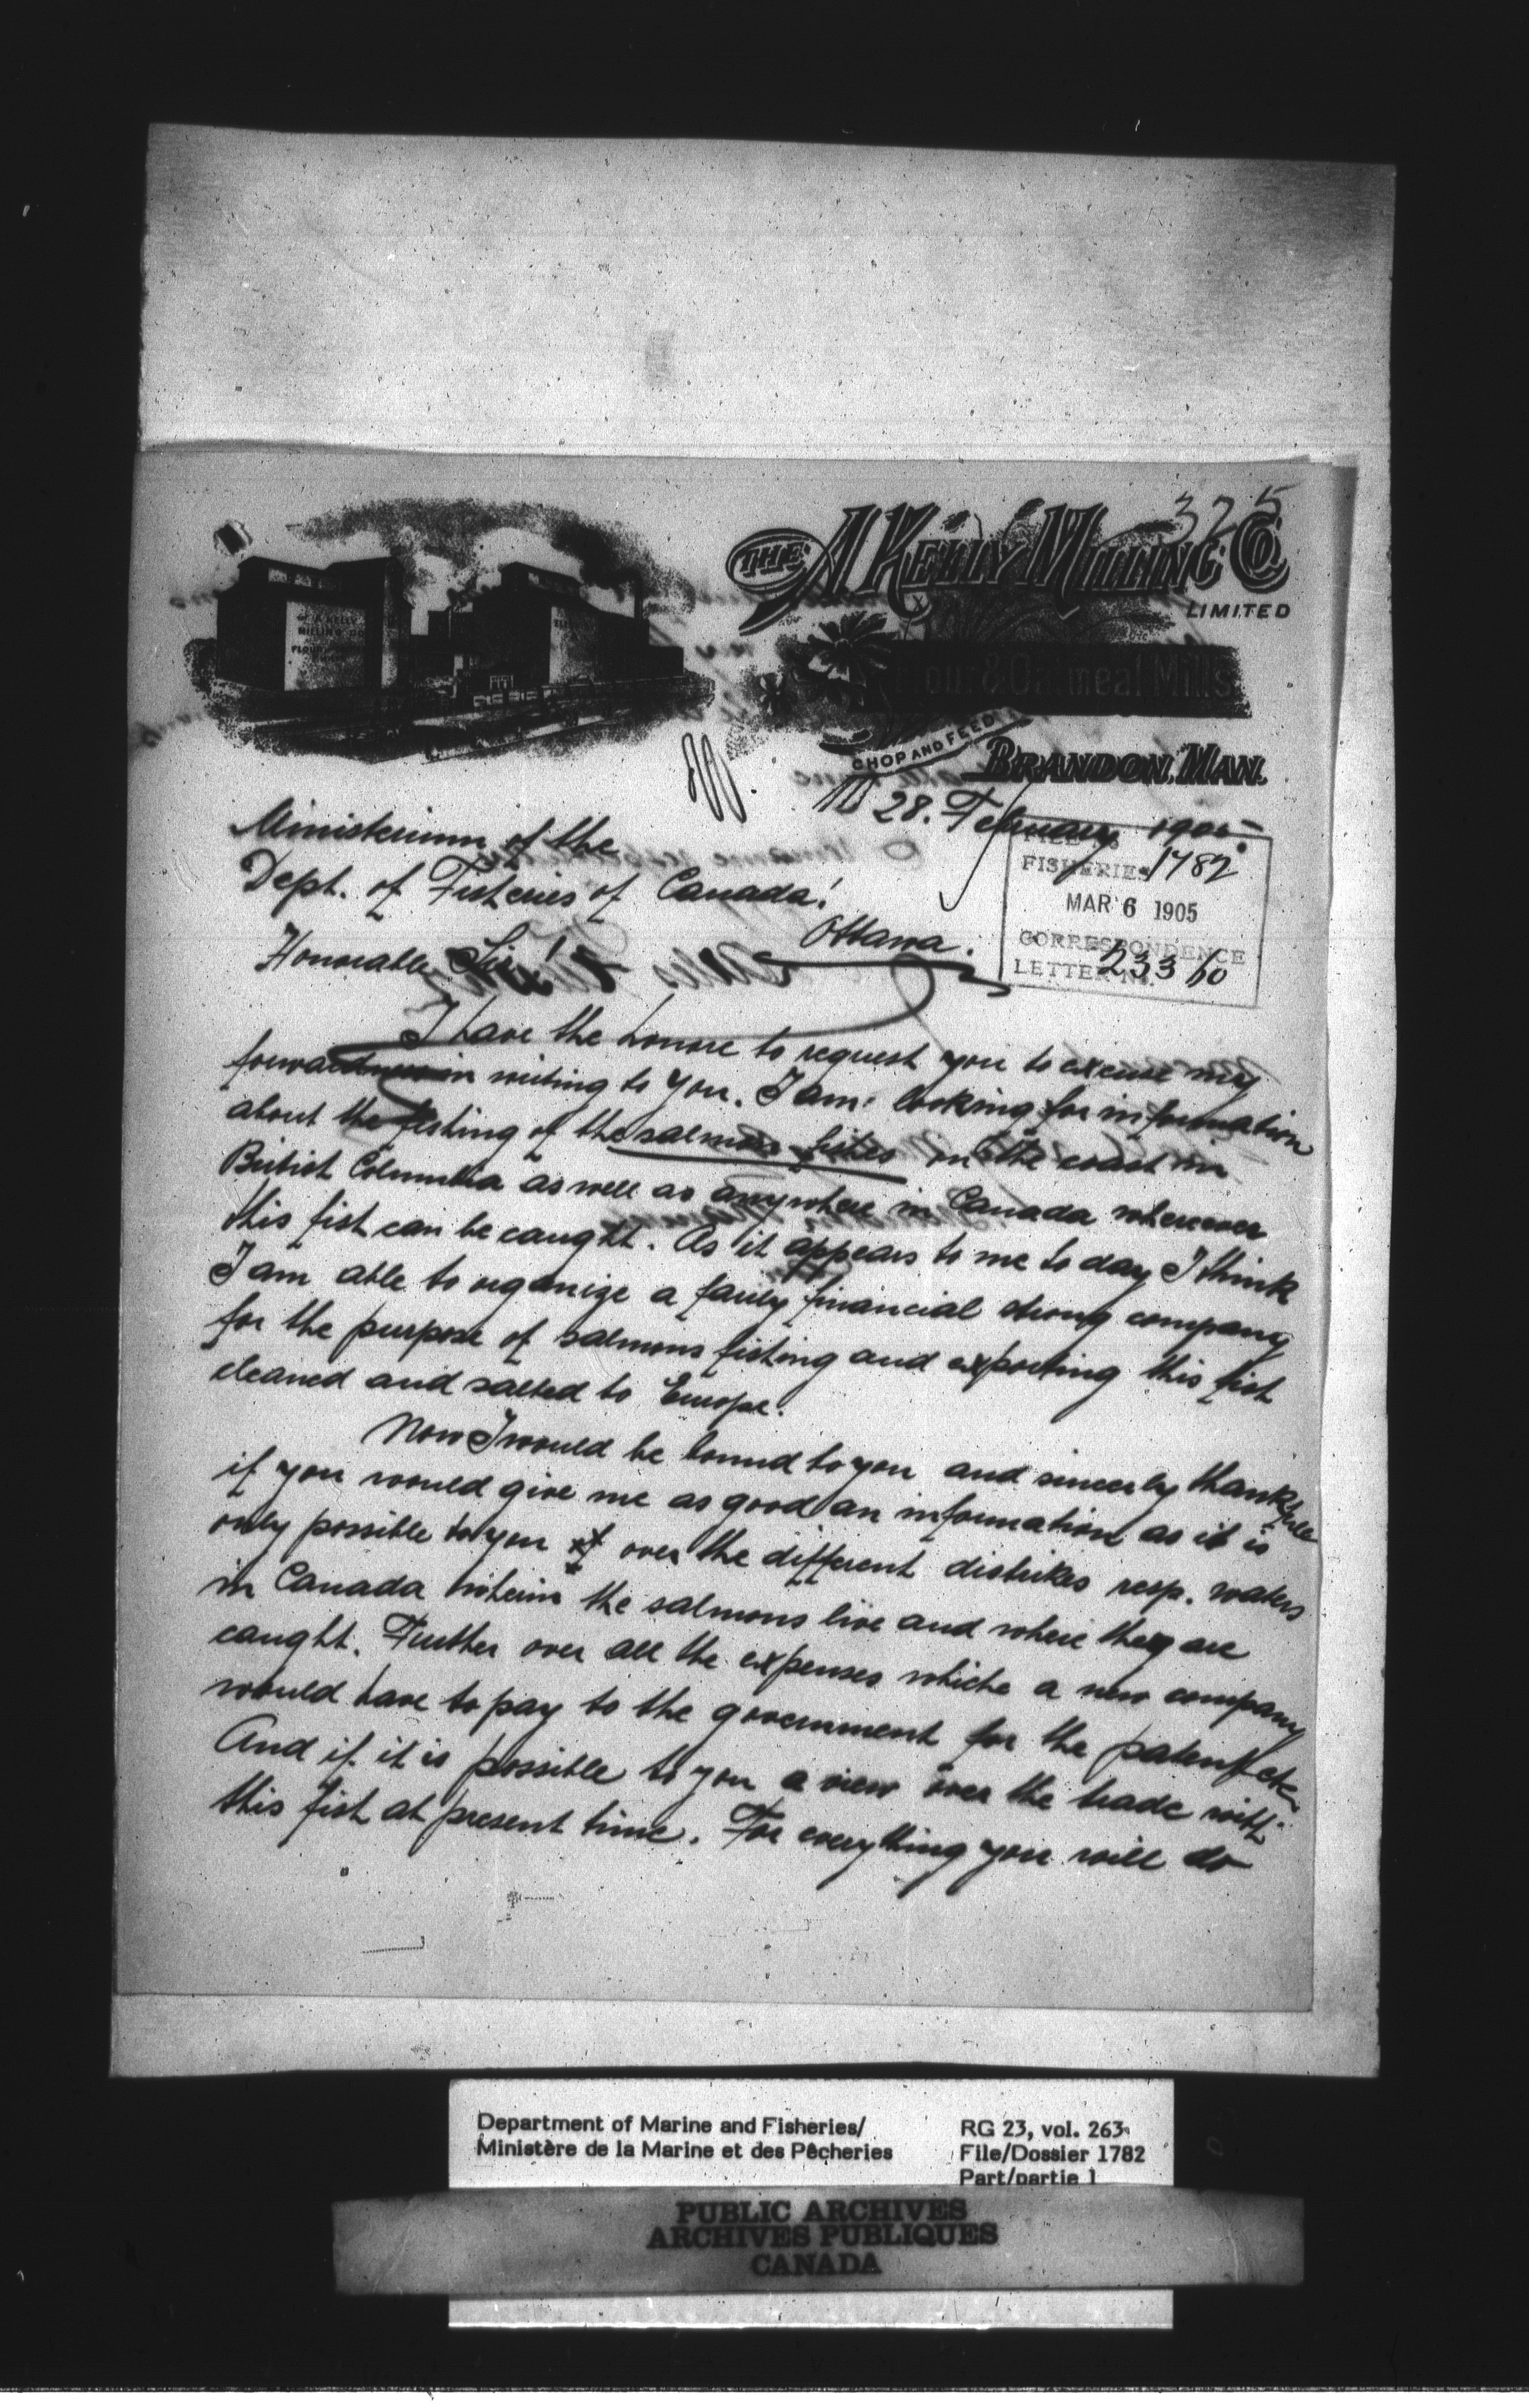 325
THE A KELLY MILLING Co.
LIMITED
Flour & Oatmeal Mills
CHOP AND FEED
BRANDON, MAN.
OF A KELLY
MILLING CO
FLOUR
28. February 1905
Ministerium of the
Dept. of Fisheries of Canada!
Ottawa.
Honorable Sir!
FILE No
FISHERIES 1782
MAR 6 1905
CORRESPONDENCE
LETTER No. 23360
I have the honore to request you to excuse my
forwardness in writing to you. I am looking for information
about the fishing of the salmons fishes on the coast in
British Columbia as well as anywhere in Canada wherever
this fish can be caught. As it appears to me to day I think
I am able to organize a fairly financial strong company
for the purpose of salmons fishing and exporting this fish
cleaned and salted to Europe.
Now I would be bound to you and sincerly thankfull
if you would give me as good an information as it is
only possible to you over the different distrikes resp. waters
in Canada wherin the salmons live and where they are
caught. Further over all the expenses whiche a new company
would have to pay to the government for the patent etc.
And if it is possible to you a view over the trade with
this fish at present time. For everything you will do
Department of Marine and Fisheries/
Ministère de la Marine et des Pêcheries
RG 23, vol. 263
File/Dossier 1782
Part/partie 1
PUBLIC ARCHIVES
ARCHIVES PUBLIQUES
CANADA